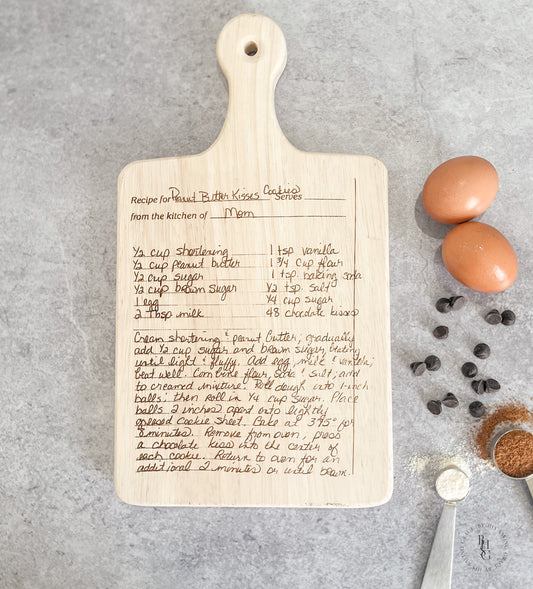 Recipe for Peanut Butter Kisses Cookies Serves
from the kitchen of Mom
1/2 cup shortening 1 tsp vanilla
1/2 cup peanut butter 1 3/4 cup flour
1/2 cup sugar 1 tsp. baking soda
1/2 cup brown sugar 1/2 tsp. salt
1 egg 1/4 cup sugar
2 Tbsp milk 48 chocolate kisses
Cream shortening & peanut butter; gradually
add 1/2 cup sugar and brown sugar, beating
until light & fluffy. Add egg, milk & vanilla;
beat well. Combine flour, soda & salt; add
to creamed mixture. Roll dough into 1-inch
balls; then roll in 1/4 cup sugar. Place
balls 2 inches apart onto lightly
greased cookie sheet. Bake at 375° for
8 minutes. Remove from oven, press
a chocolate kiss into the center of
each cookie. Return to oven for an
additional 2 minutes or until brown.